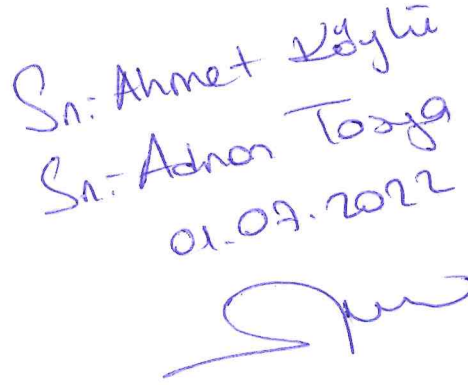 Sn: Ahmet Köylü
Sn: Adnan Tosya
01.07.2022